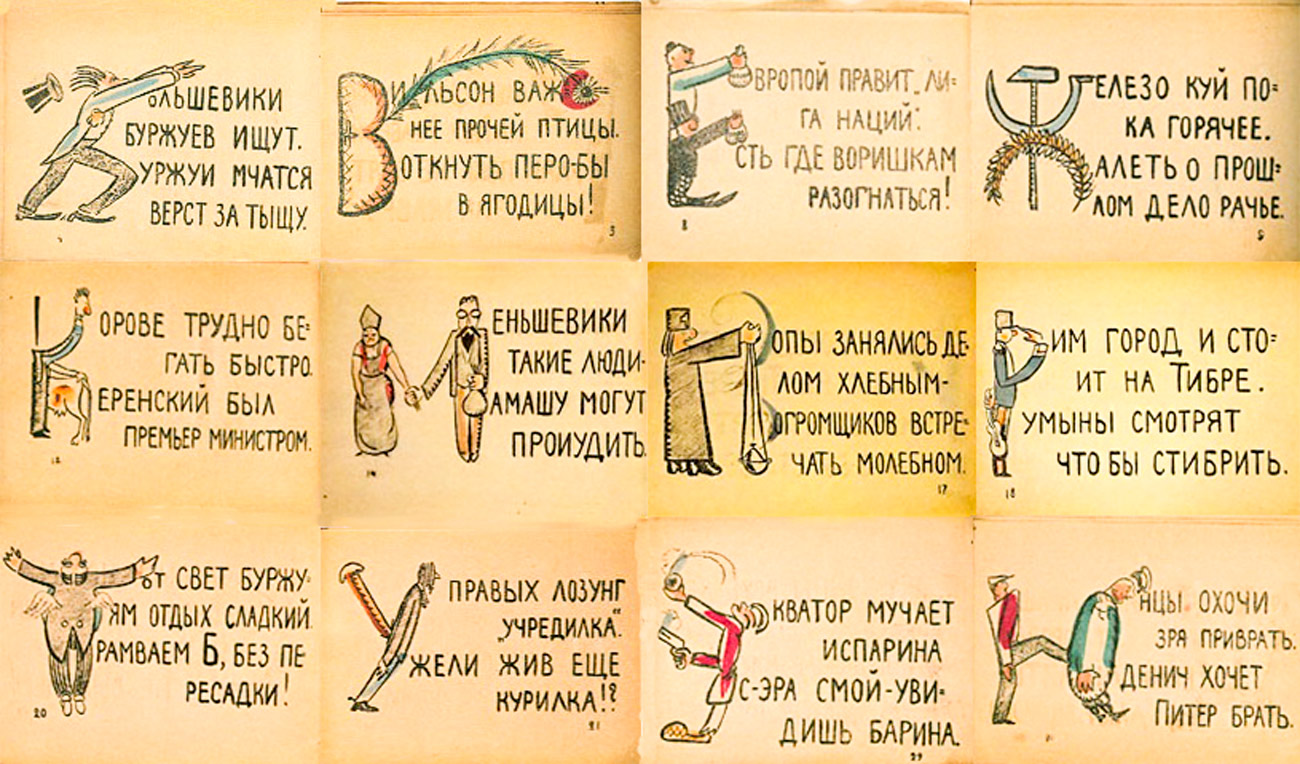 БОЛЬШЕВИКИ
БУРЖУЕВ ИЩУТ.
УРЖУИ МЧАТСЯ
ВЕРСТ ЗА ТЫЩУ.
ВИЛЬСОН ВАЖ
НЕЕ ПРОЧЕЙ ПТИЦЫ.
ОТКНУТЬ ПЕРО-БЫ
В ЯГОДИЦЫ!
3
ЕВРОПОЙ ПРАВИТ „ЛИ=
ГА НАЦИЙ".
СТЬ ГДЕ ВОРИШКАМ
РАЗОГНАТЬСЯ!
8
ЖЕЛЕЗО КУЙ ПО=
КА ГОРЯЧЕЕ.
АЛЕТЬ О ПРОШ=
ЛОМ ДЕЛО РАЧЬЕ.
9
КОРОВЕ ТРУДНО БЕ=
ГАТЬ БЫСТРО.
ЕРЕНСКИЙ БЫЛ
ПРЕМЬЕР МИНИСТРОМ.
12
МЕНЬШЕВИКИ
ТАКИЕ ЛЮДИ-
АМАШУ МОГУТ
ПРОИУДИТЬ.
14
ПОПЫ ЗАНЯЛИСЬ ДЕ-
ЛОМ ХЛЕБНЫМ-
ОГРОМЩИКОВ ВСТРЕ-
ЧАТЬ МОЛЕБНОМ.
17
РИМ ГОРОД И СТО=
ИТ НА ТИБРЕ.
УМЫНЫ СМОТРЯТ
ЧТО БЫ СТИБРИТЬ.
18
ТОТ СВЕТ БУРЖУ-
ЯМ ОТДЫХ СЛАДКИЙ
РАМВАЕМ Б, БЕЗ ПЕ
РЕСАДКИ!
20
У ПРАВЫХ ЛОЗУНГ
„УЧРЕДИЛКА".
ЖЕЛИ ЖИВ ЕЩЕ
КУРИЛКА!?
21
ЭКВАТОР МУЧАЕТ
ИСПАРИНА
С-ЭРА СМОЙ-УВИ-
ДИШЬ БАРИНА.
29
ЮНЦЫ ОХОЧИ
ЗРЯ ПРИВРАТЬ.
ДЕНИЧ ХОЧЕТ
ПИТЕР БРАТЬ.